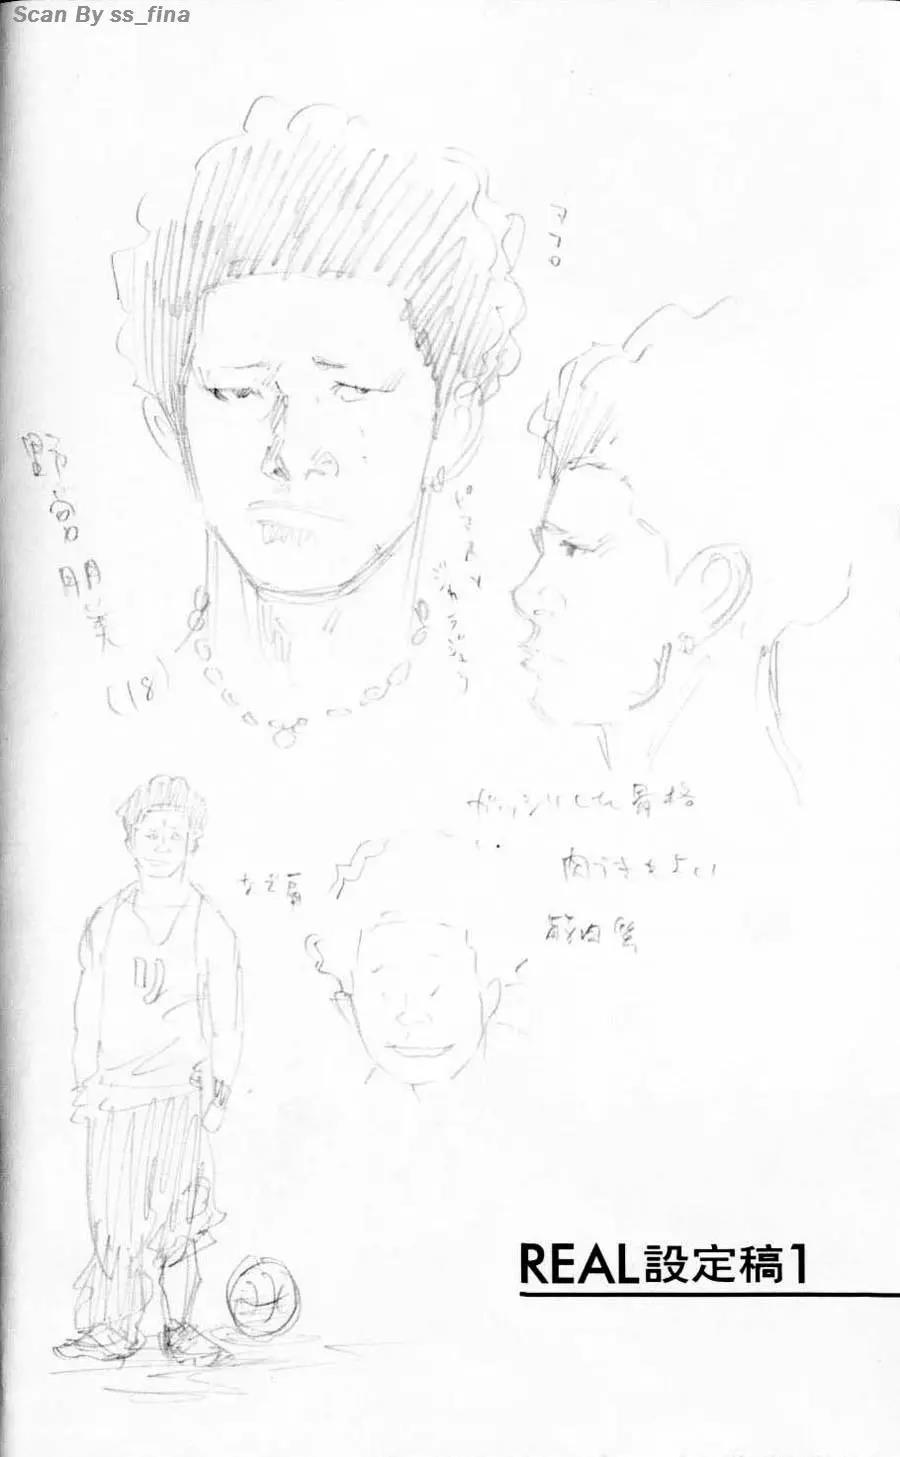 Scan By ss_fina
アフロ
野宮朋美
(18)
ピアスとか
ジャラジャラ
ガッシリした骨格
肉づきもよい
筋肉質
REAL設定稿1